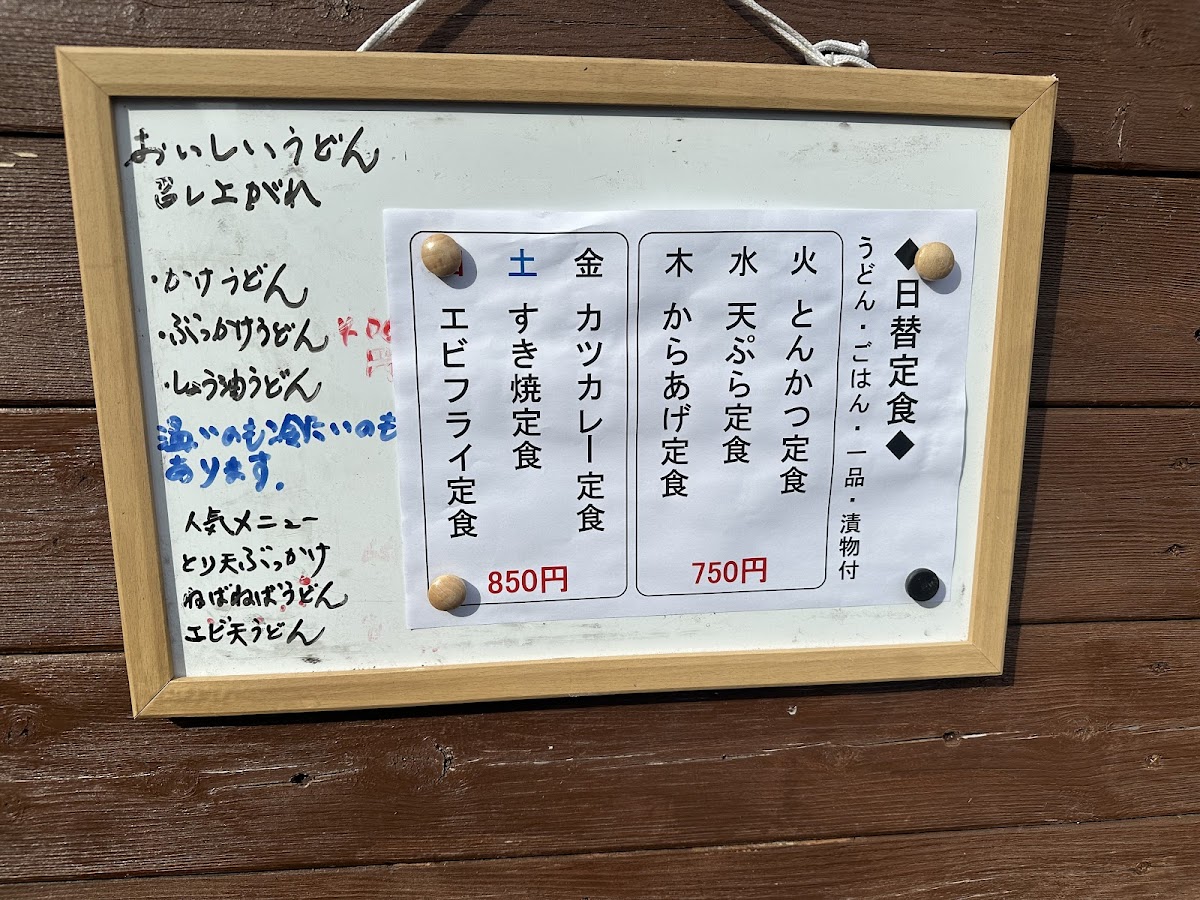 おいしいうどん
召し上がれ
・かけうどん
・ぶっかけうどん
・しょう油うどん
円
温いのも冷たいのも
あります.
人気メニュー
とり天ぶっかけ
ねばねばうどん
エビ天うどん
◆日替定食◆
うどん・ごはん・一品・漬物付
火 とんかつ定食
水 天ぷら定食
木 からあげ定食
750円
金 カツカレー定食
土 すき焼定食
エビフライ定食
850円